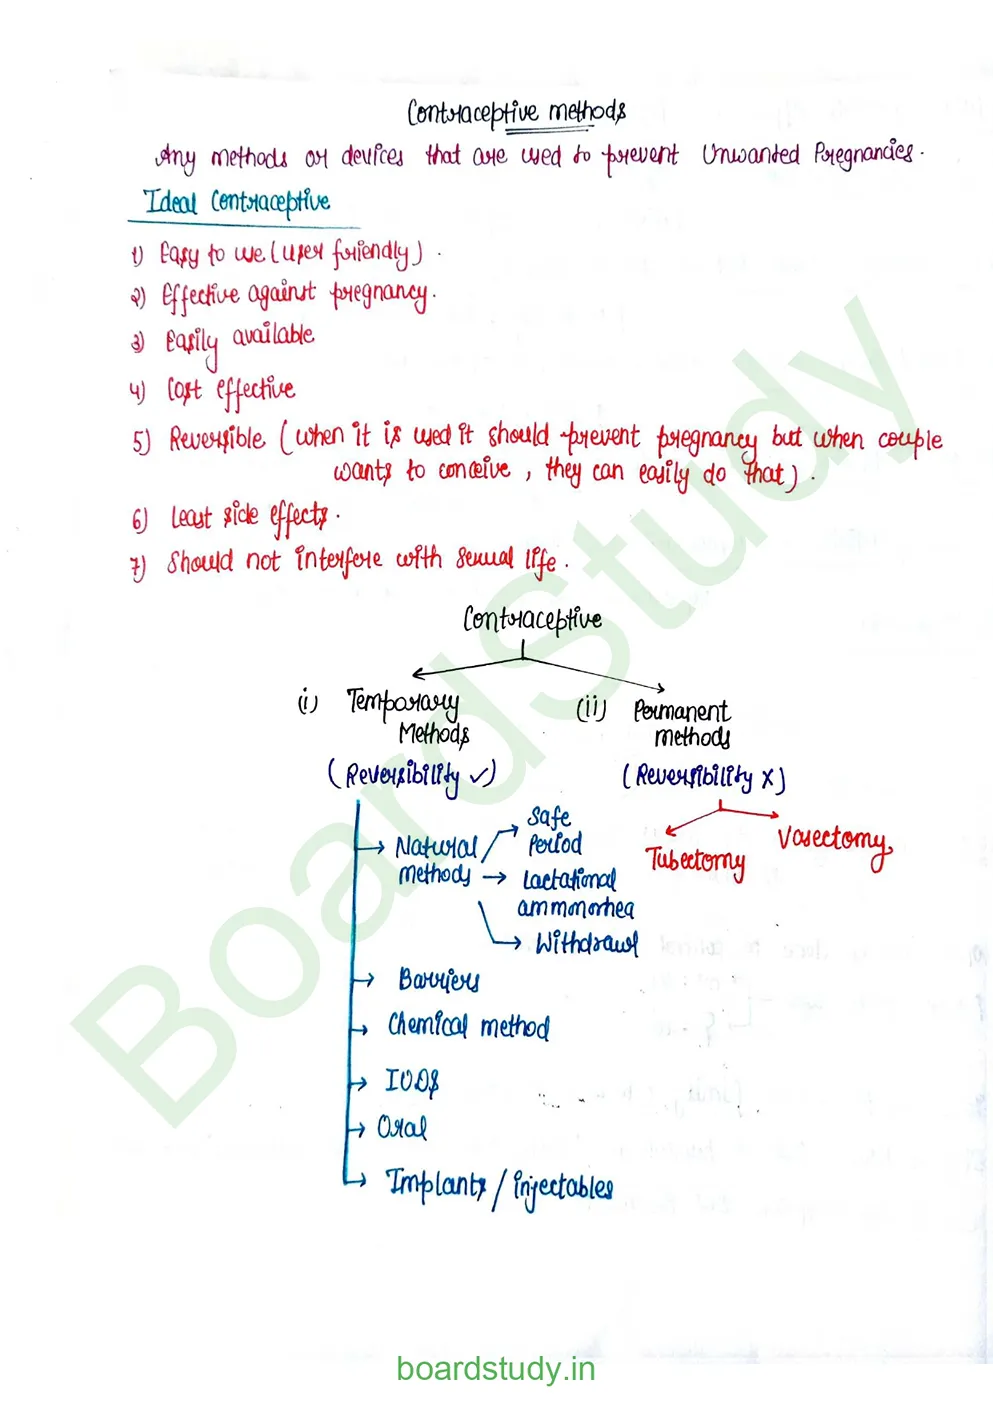 Contraceptive methods
Any methods or devices that are used to prevent Unwanted Pregnancies.
Ideal Contraceptive
1) Easy to use (user friendly).
2) Effective against pregnancy.
3) Easily available
4) Cost effective
5) Reversible (when it is used it should prevent pregnancy but when couple
wants to conceive, they can easily do that).
6) Least side effects.
7) Should not interfere with sexual life.
Contraceptive
(i) Temporary
Methods
(Reversibility ✓)
(ii) Permanent
methods
(Reversibility X)
Natural
methods
Safe
Period
Lactational
ammonorhea
Withdrawl
Tubectomy
Vasectomy
Barriers
Chemical method
IUDs
Oral
Implants / injectables
Boardstudy
boardstudy.in